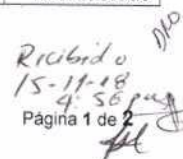 Recibido
15-11-18
4:56 pm
Página 1 de 2